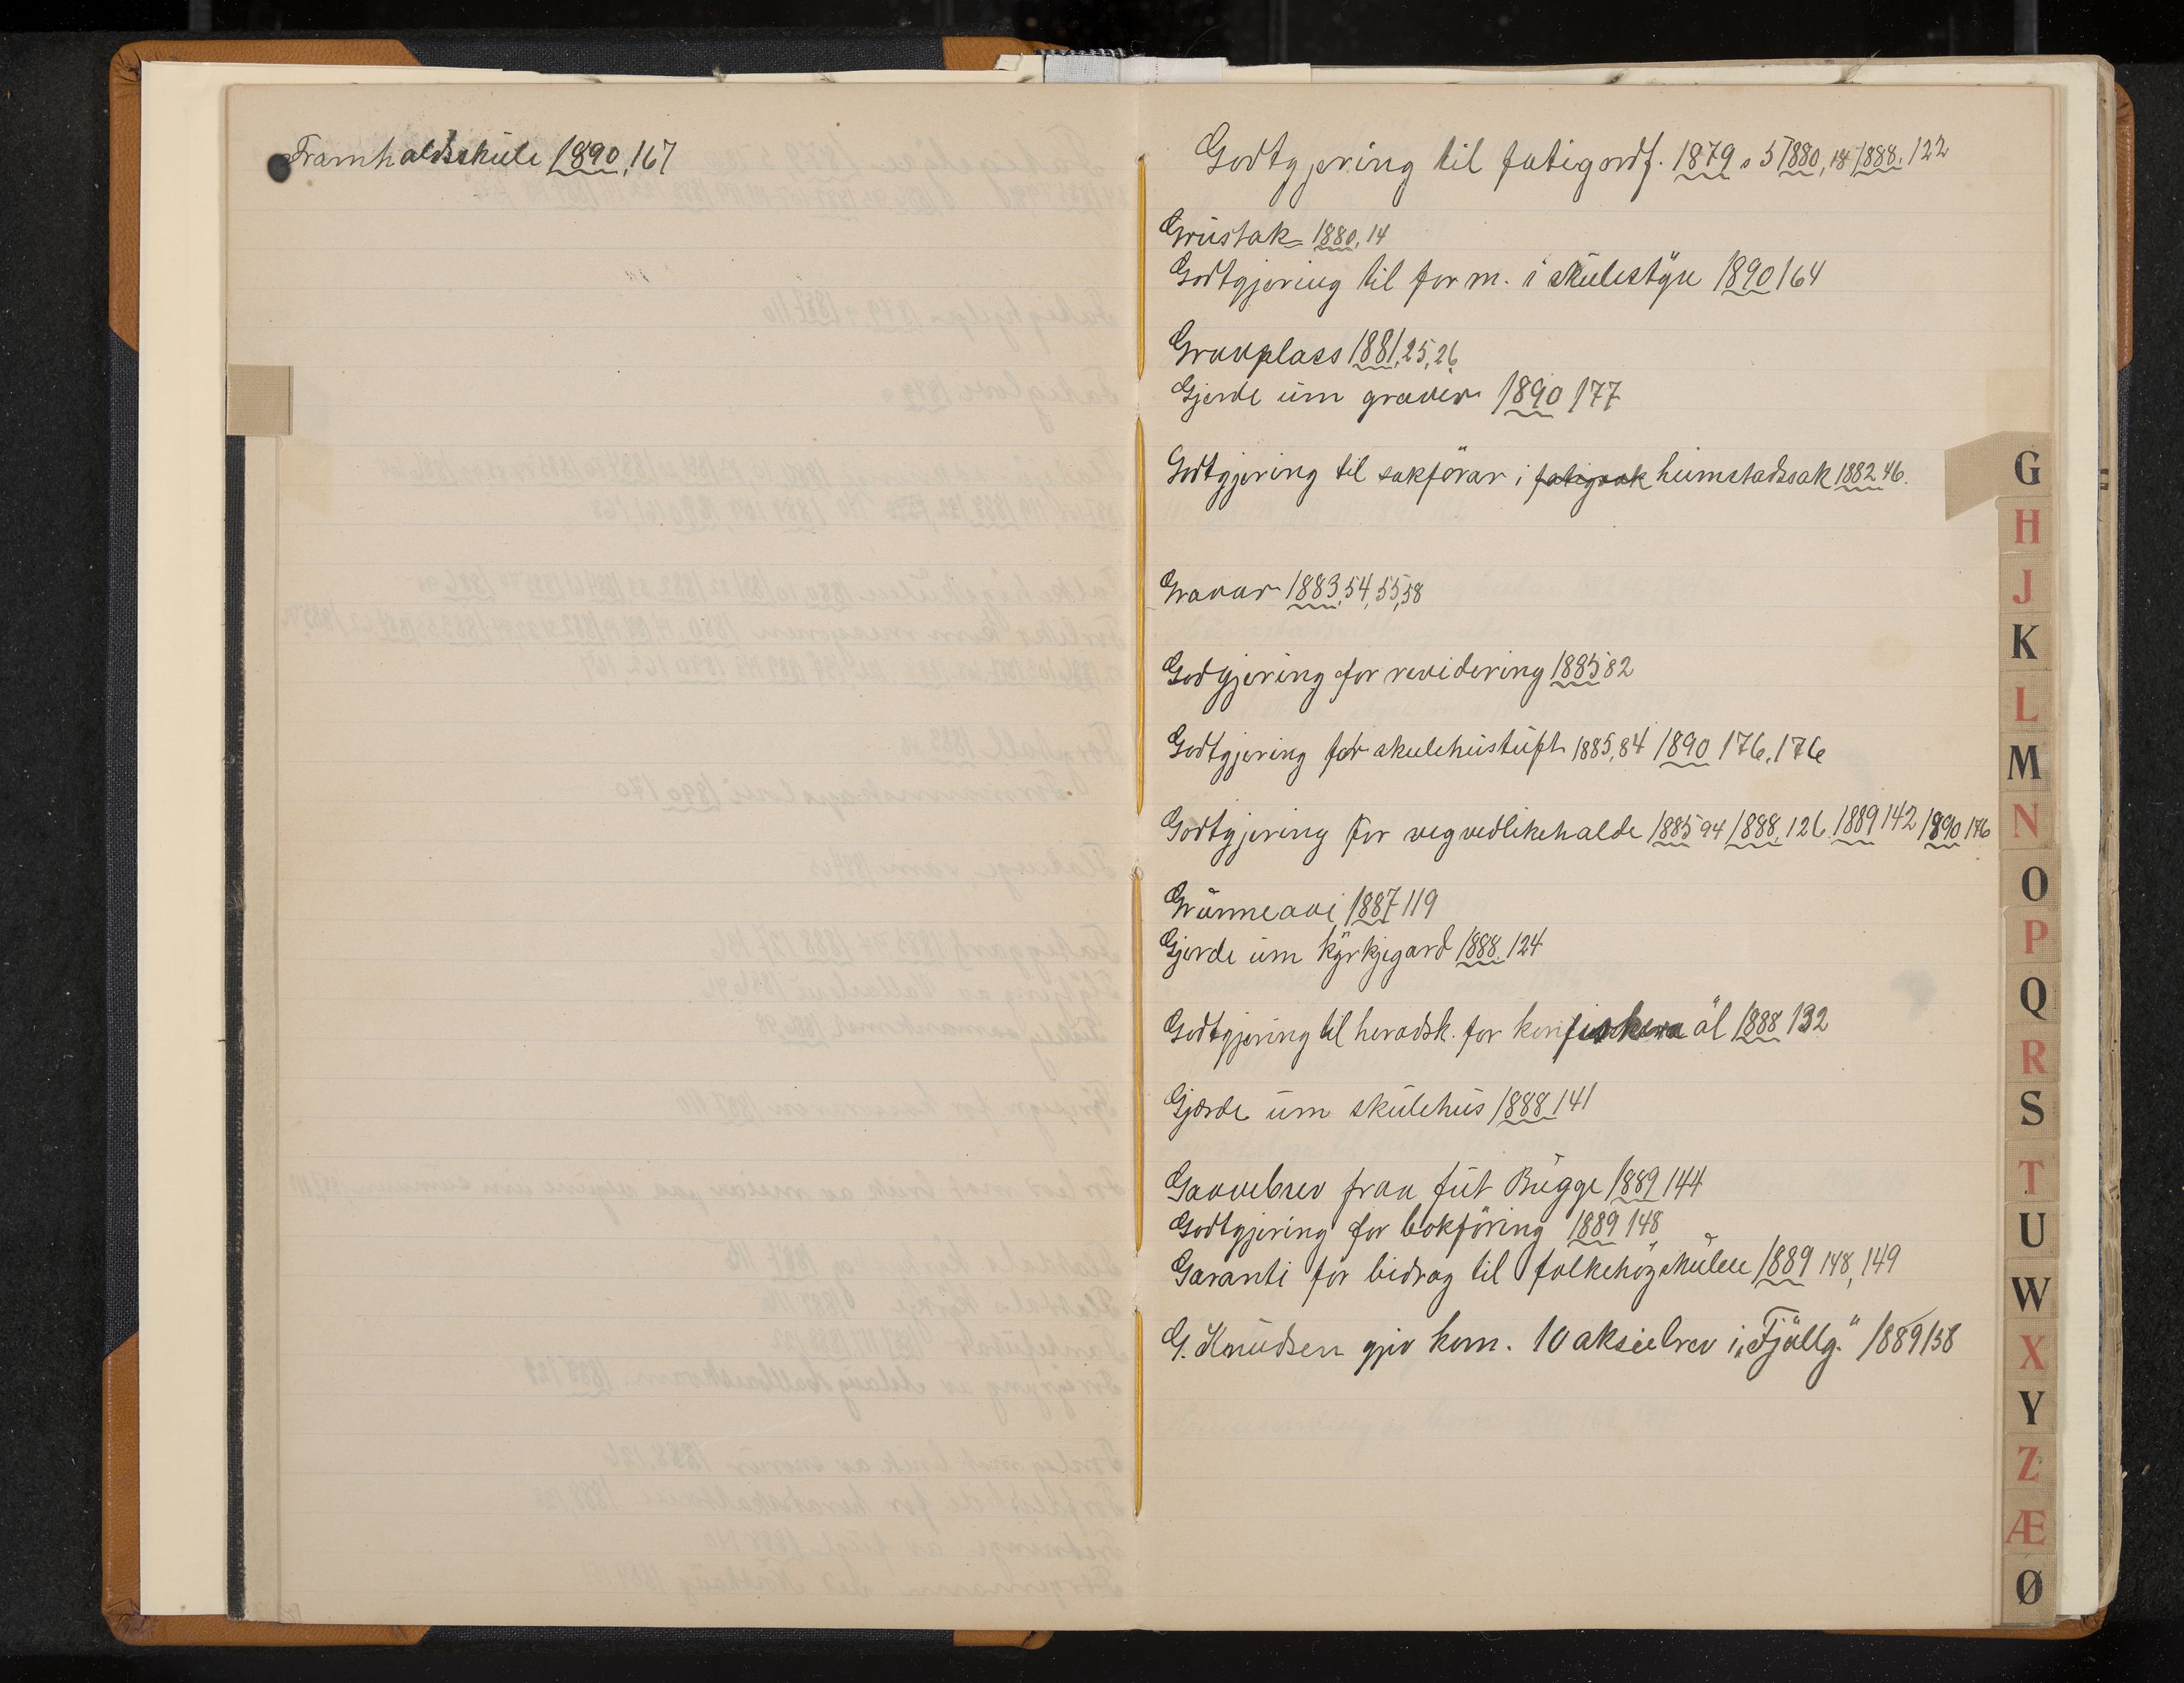 Framhaldsskule 1890, 167
Godtgjering til fatigordf. 1879 s 5 1880, 18 1888. 122
Grustak 1880, 14
Godtgjering til form. i skulestyre 1890 164
Gravplass 1881, 25, 26
Gjerde um graver 1890 177
Godtgjering til sakförar i fatigsak heimstadssak 1882 46.
Gravar 1883, 54, 55, 58
Godgjering for revidering 1885 82
Godtgjering for skulehustuft 1885, 84 1890 176, 176
Godtgjering for vegvedlikehalde 1885 94 1888, 126, 1889 142 1890 176
1887 119
Gjerde um kyrkjegard 1888. 124
Godtgjering til heradsk. for konfiskera öl 1888 132
Gjerde um skulehus 1888 141
Gaavebrev fraa fut Bugge 1889 144
Godtgjering for bokföring 1889 148
Garanti for bidrag til folkehögskulen 1889 148, 149
G. Knudsen gjev kom. 10 aksiebrev i „Fjöllg." 1889 158
G
H
J
K
L
M
N
O
P
Q
R
S
T
U
W
X
Y
Z
Æ
Ø